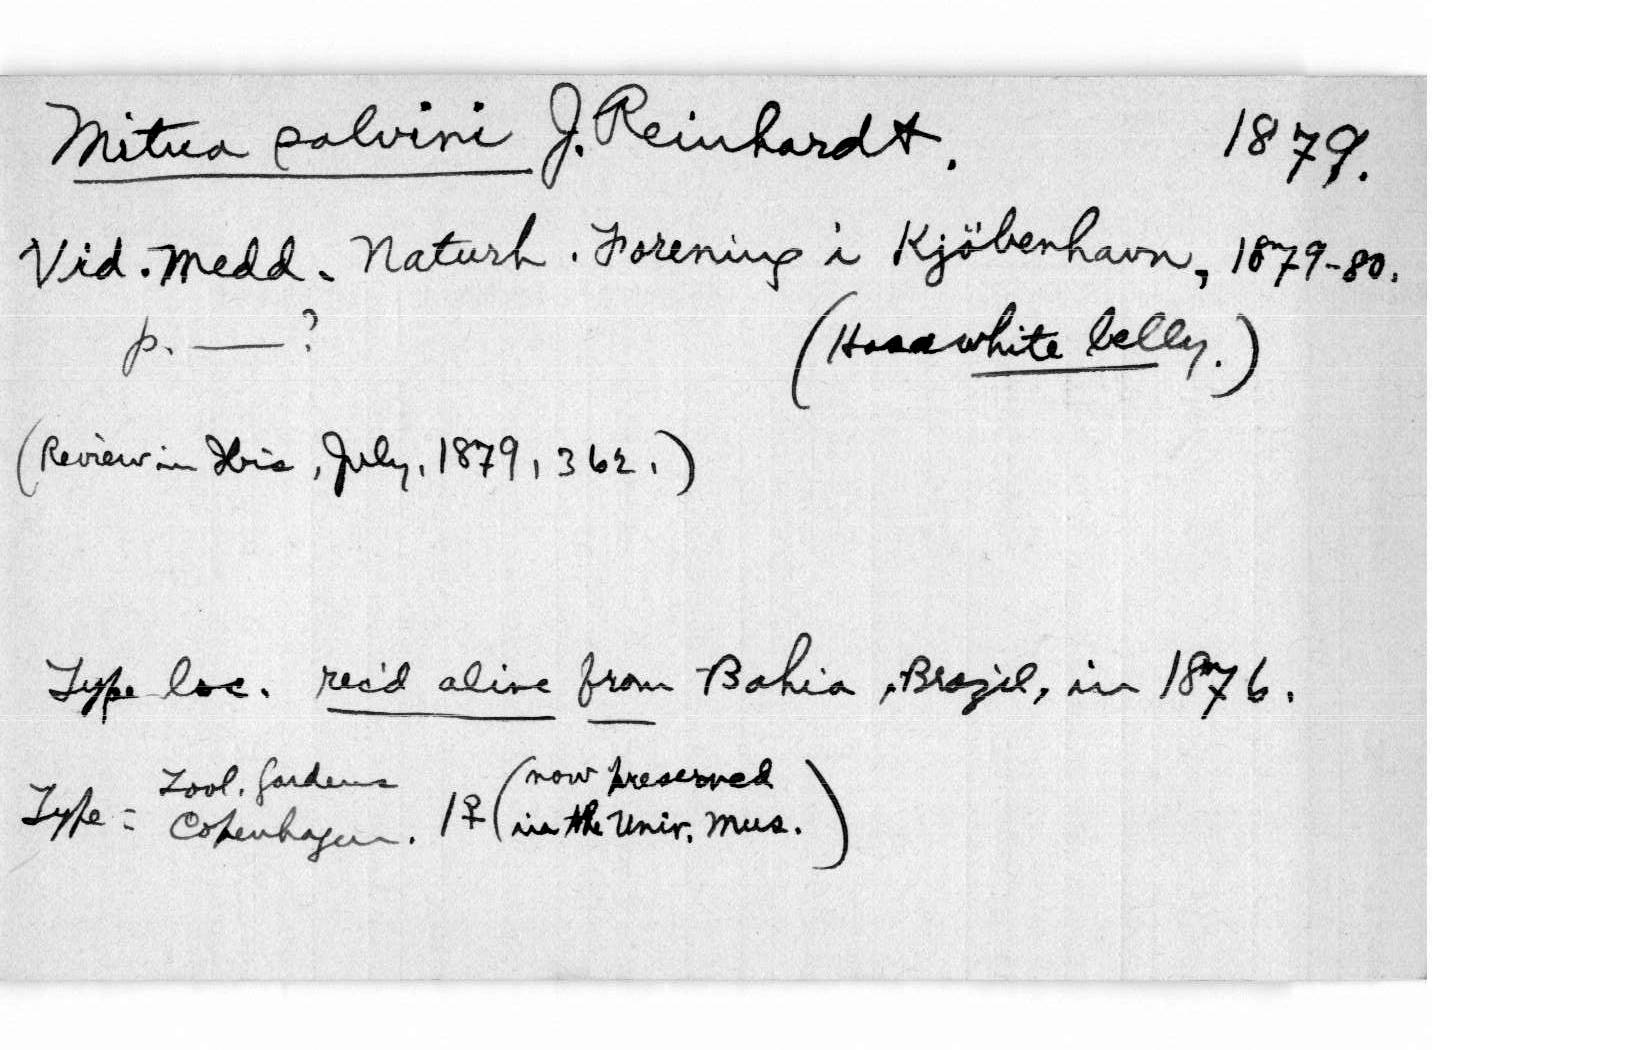 Mitua salvini J. Reinhardt. 1879.
Vid. Medd. Naturh. Forening i Kjöbenhavn, 1879-80.
p. —— ?
(Has a white belly.)
(Review in Ibis, July, 1879, 362.)
Type loc. rec'd alive from Bahia, Brazil, in 1876.
Type = Zool. Gardens Copenhagen. 1♀ (now preserved in the Univ. Mus.)